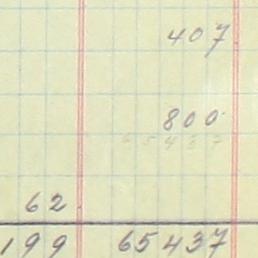 407
800
65437
62.
199 65437